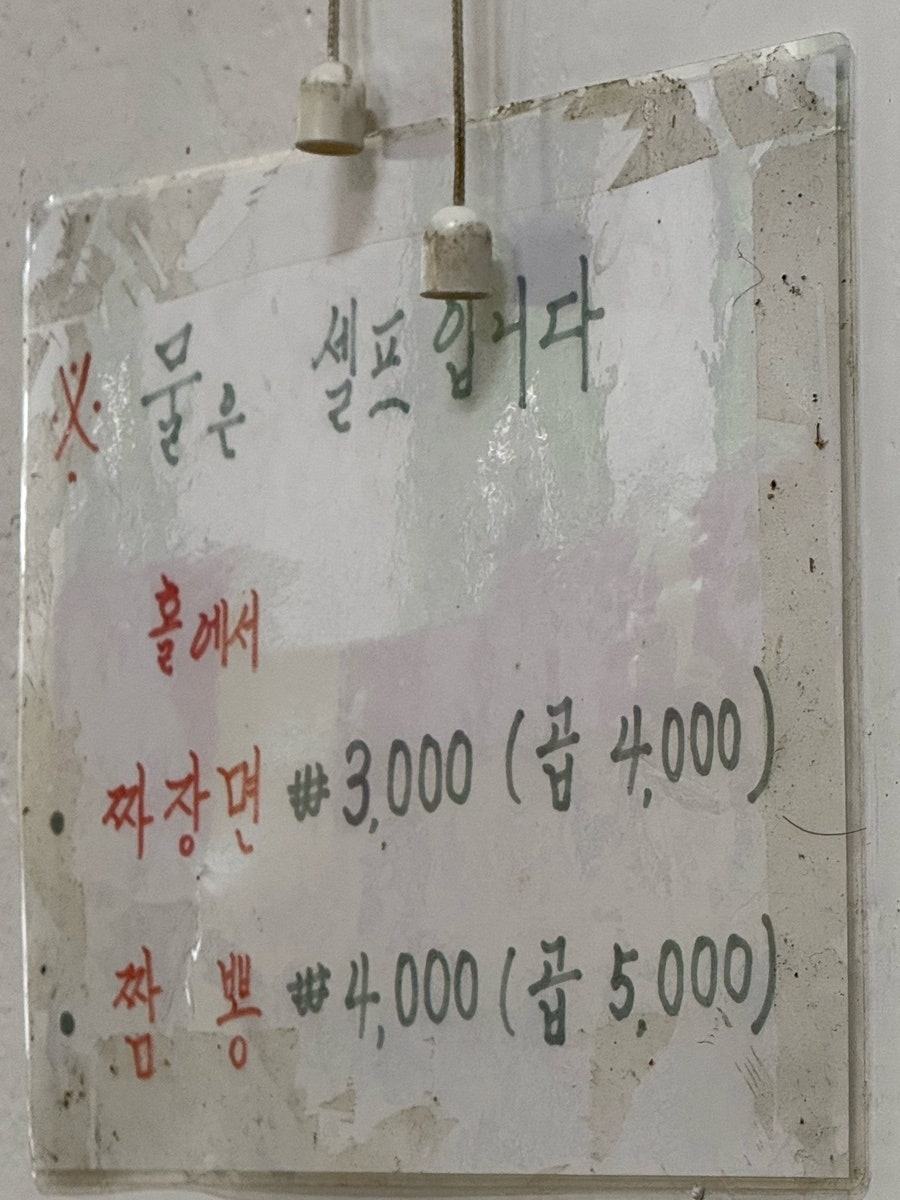 ※ 물은 셀프입니다
홀에서
• 짜장면 ₩3,000 (곱 4,000)
• 짬뽕 ₩4,000 (곱 5,000)